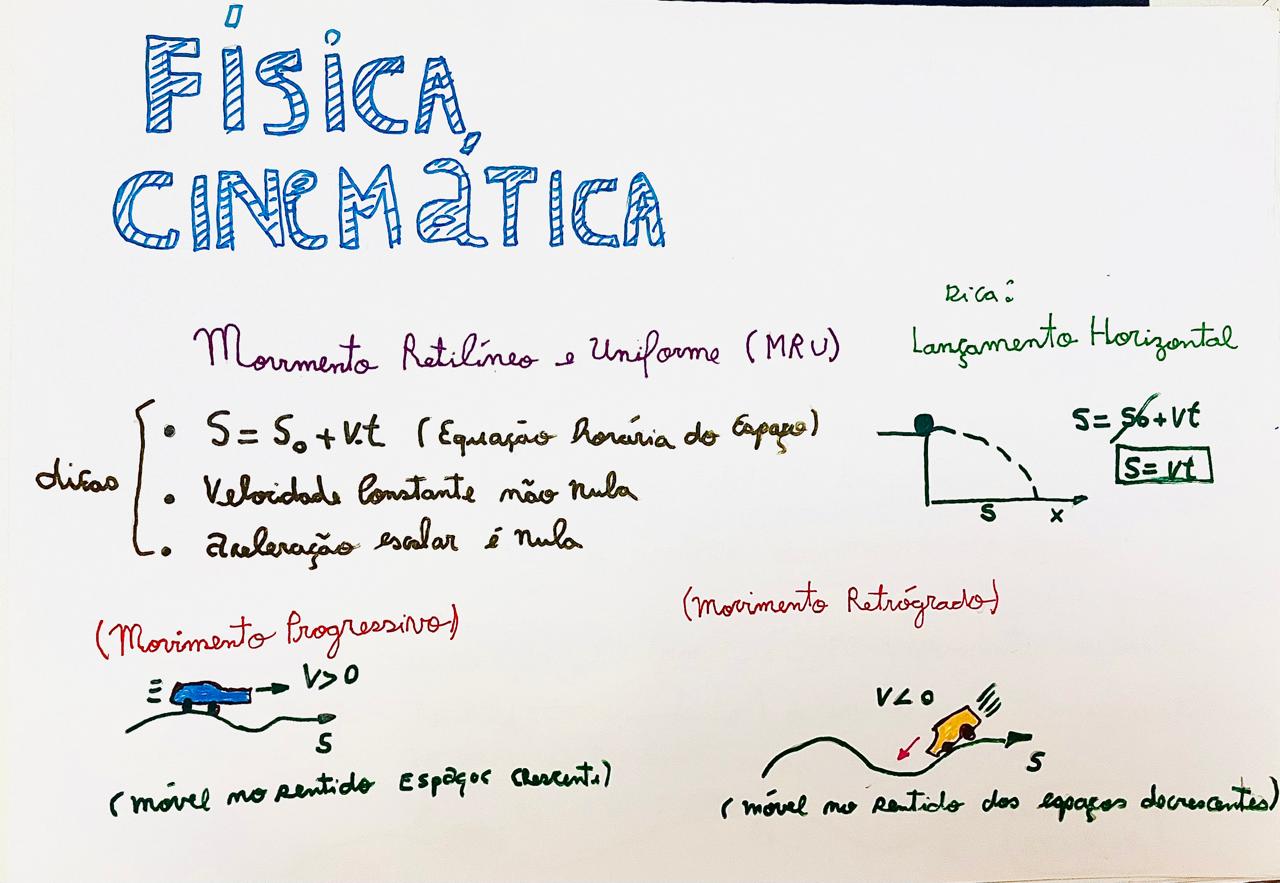 FÍSICA
CINEMÁTICA
Dica:
Movimento Retilíneo e Uniforme (MRU)
Lançamento Horizontal
dicas
• S = S₀ + V.t (Equação Horária do Espaço)
• Velocidade Constante não nula
• aceleração escalar é nula
S = S₀ + Vt
S = vt
S
x
(Movimento Progressivo)
V > 0
S
(móvel no sentido Espaços Crescente)
(Movimento Retrógrado)
V < 0
S
(móvel no sentido dos espaços decrescentes)